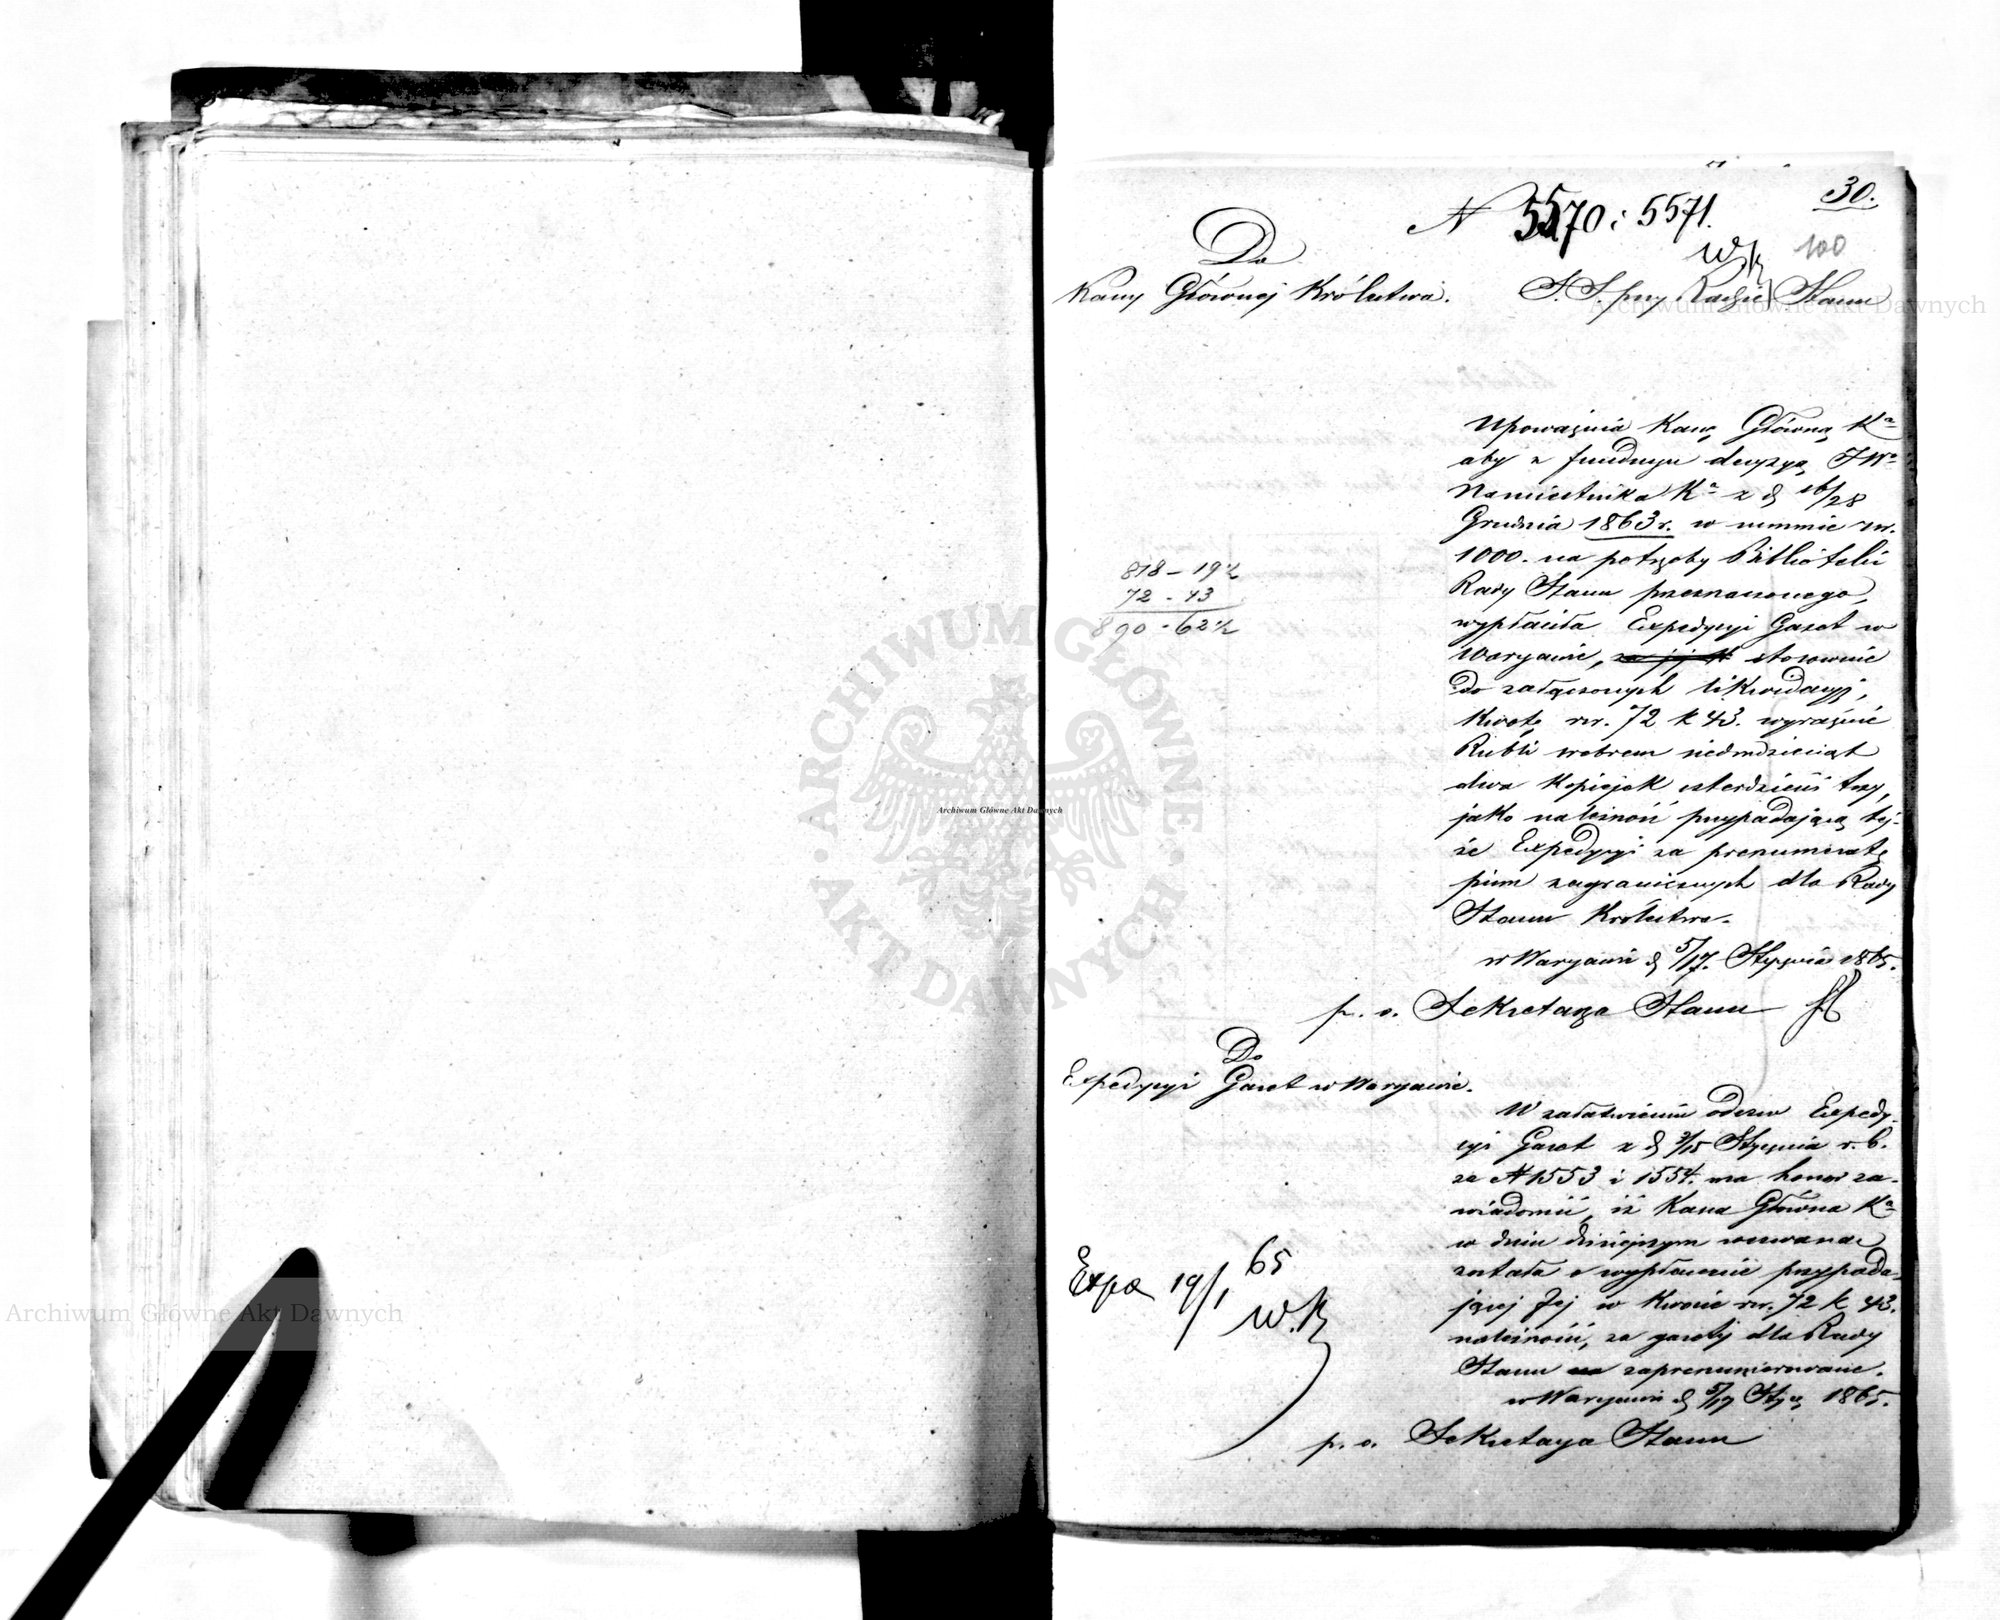 30.
N 5570 i 5571.
100
Do
Kassy Głównej Królestwa.
S. S. przy Radzie Stanu
Upoważnia Kassę Główną Kᵃ
aby z funduszu decyzyą JWᵒ
Namiestnika Kᵃ z d. 16/28
Grudnia 1863 r. w summie rsr.
1000. na potrzeby Biblioteki
Rady Stanu przeznaczonego,
wypłaciła Expedycyi Gazet w
Warszawie, stosownie
do załączonych likwidacyj,
kwotę rsr. 72 k 43. wyraźnie
Rubli srebrem siedmdziesiąt
dwa kopiejek czterdzieści trzy,
jako należność przypadającą tej-
że Expedycyi za prenumeratę
pism zagranicznych dla Rady
Stanu Królestwa.
w Warszawie d. 5/17. Stycznia 1865.
p. o. Sekretarza Stanu
818 – 19½
72 - 43
890 - 62½
Do
Expedycyi Gazet w Warszawie.
W załatwieniu odezw Expedy-
cyi Gazet z d. 3/15 Stycznia r. b.
za N 1553 i 1554. ma honor za-
wiadomić, iż Kassa Główna Kᵃ
w dniu dzisiejszym wezwaną
została o wypłacenie przypada-
jącej Jej w kwocie rsr. 72 k 43.
należności, za gazety dla Rady
Stanu zaprenumerowane.
w Warszawie d. 5/17 Stycz 1865.
p. o. Sekretarza Stanu
Expa 19/1 65
W.K
ARCHIWUM GŁÓWNE
AKT DAWNYCH
Archiwum Główne Akt Dawnych
Archiwum Główne Akt Dawnych
Archiwum Główne Akt Dawnych